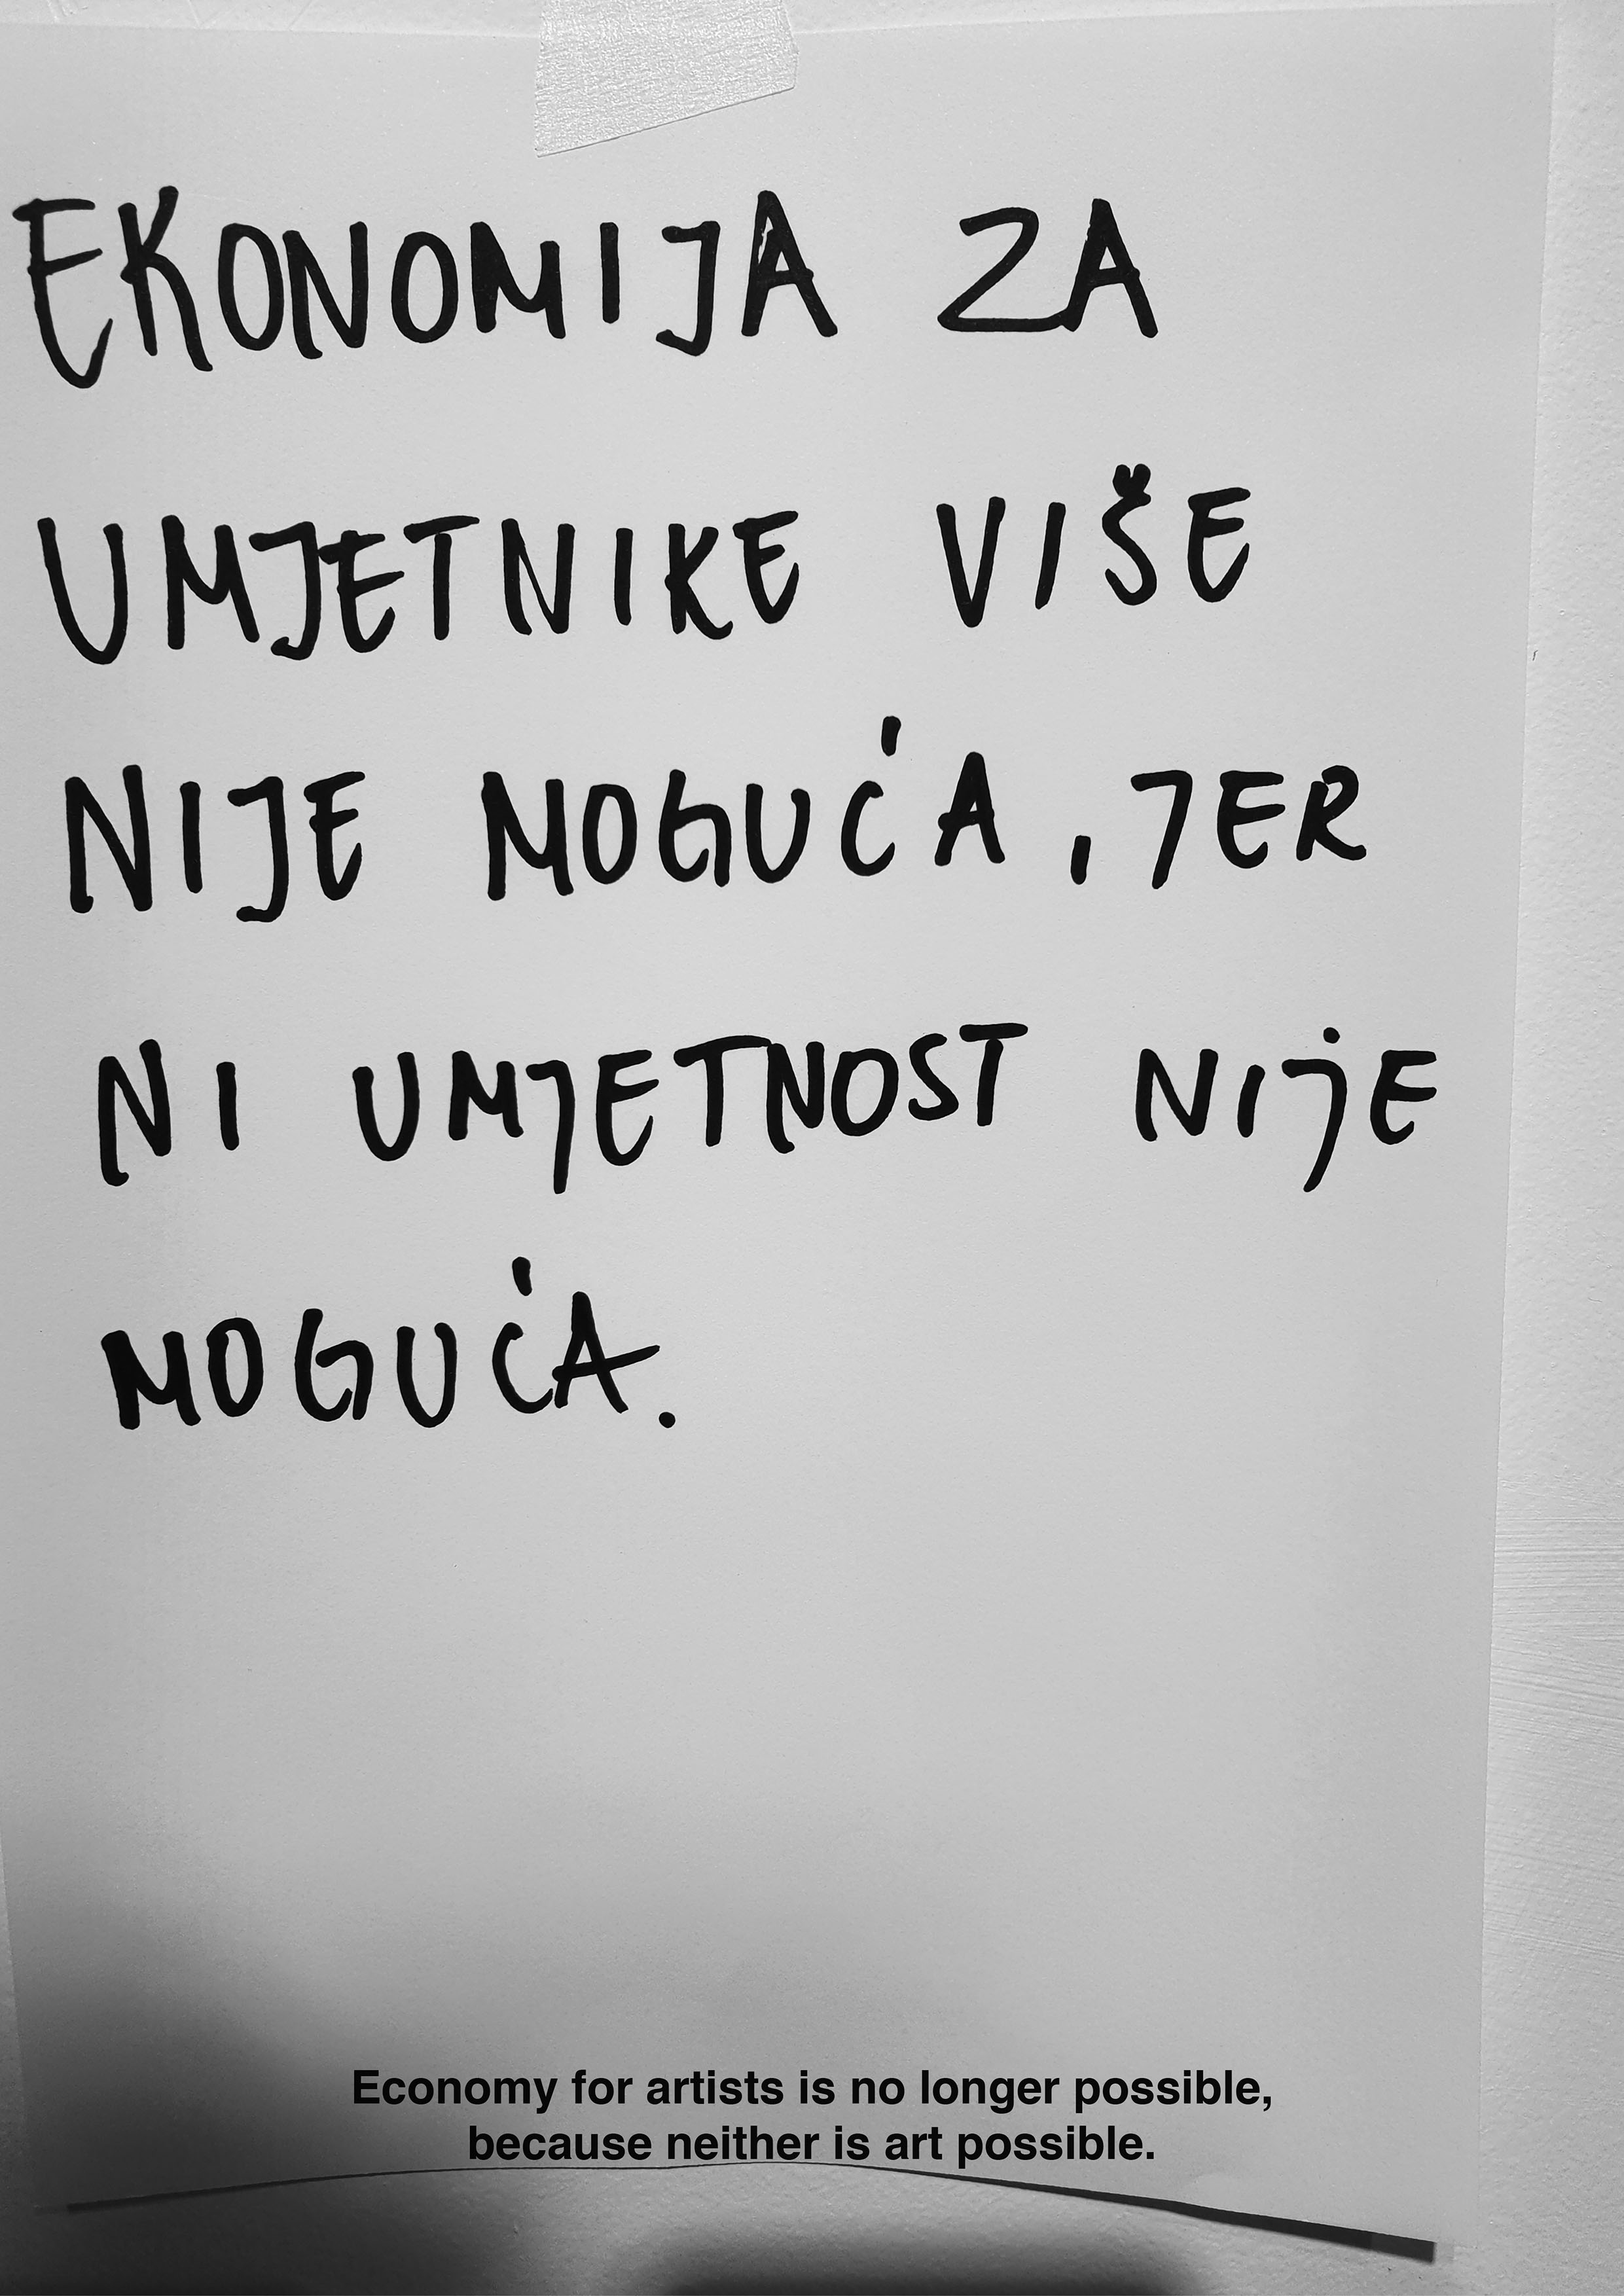 EKONOMIJA ZA
UMJETNIKE VIŠE
NIJE MOGUĆA, JER
NI UMJETNOST NIJE
MOGUĆA.
Economy for artists is no longer possible,
because neither is art possible.